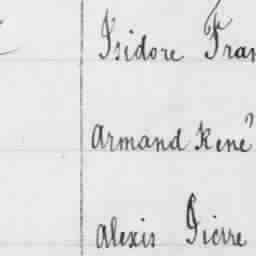 Isidore Fran
Armand René
Alexis Pierre